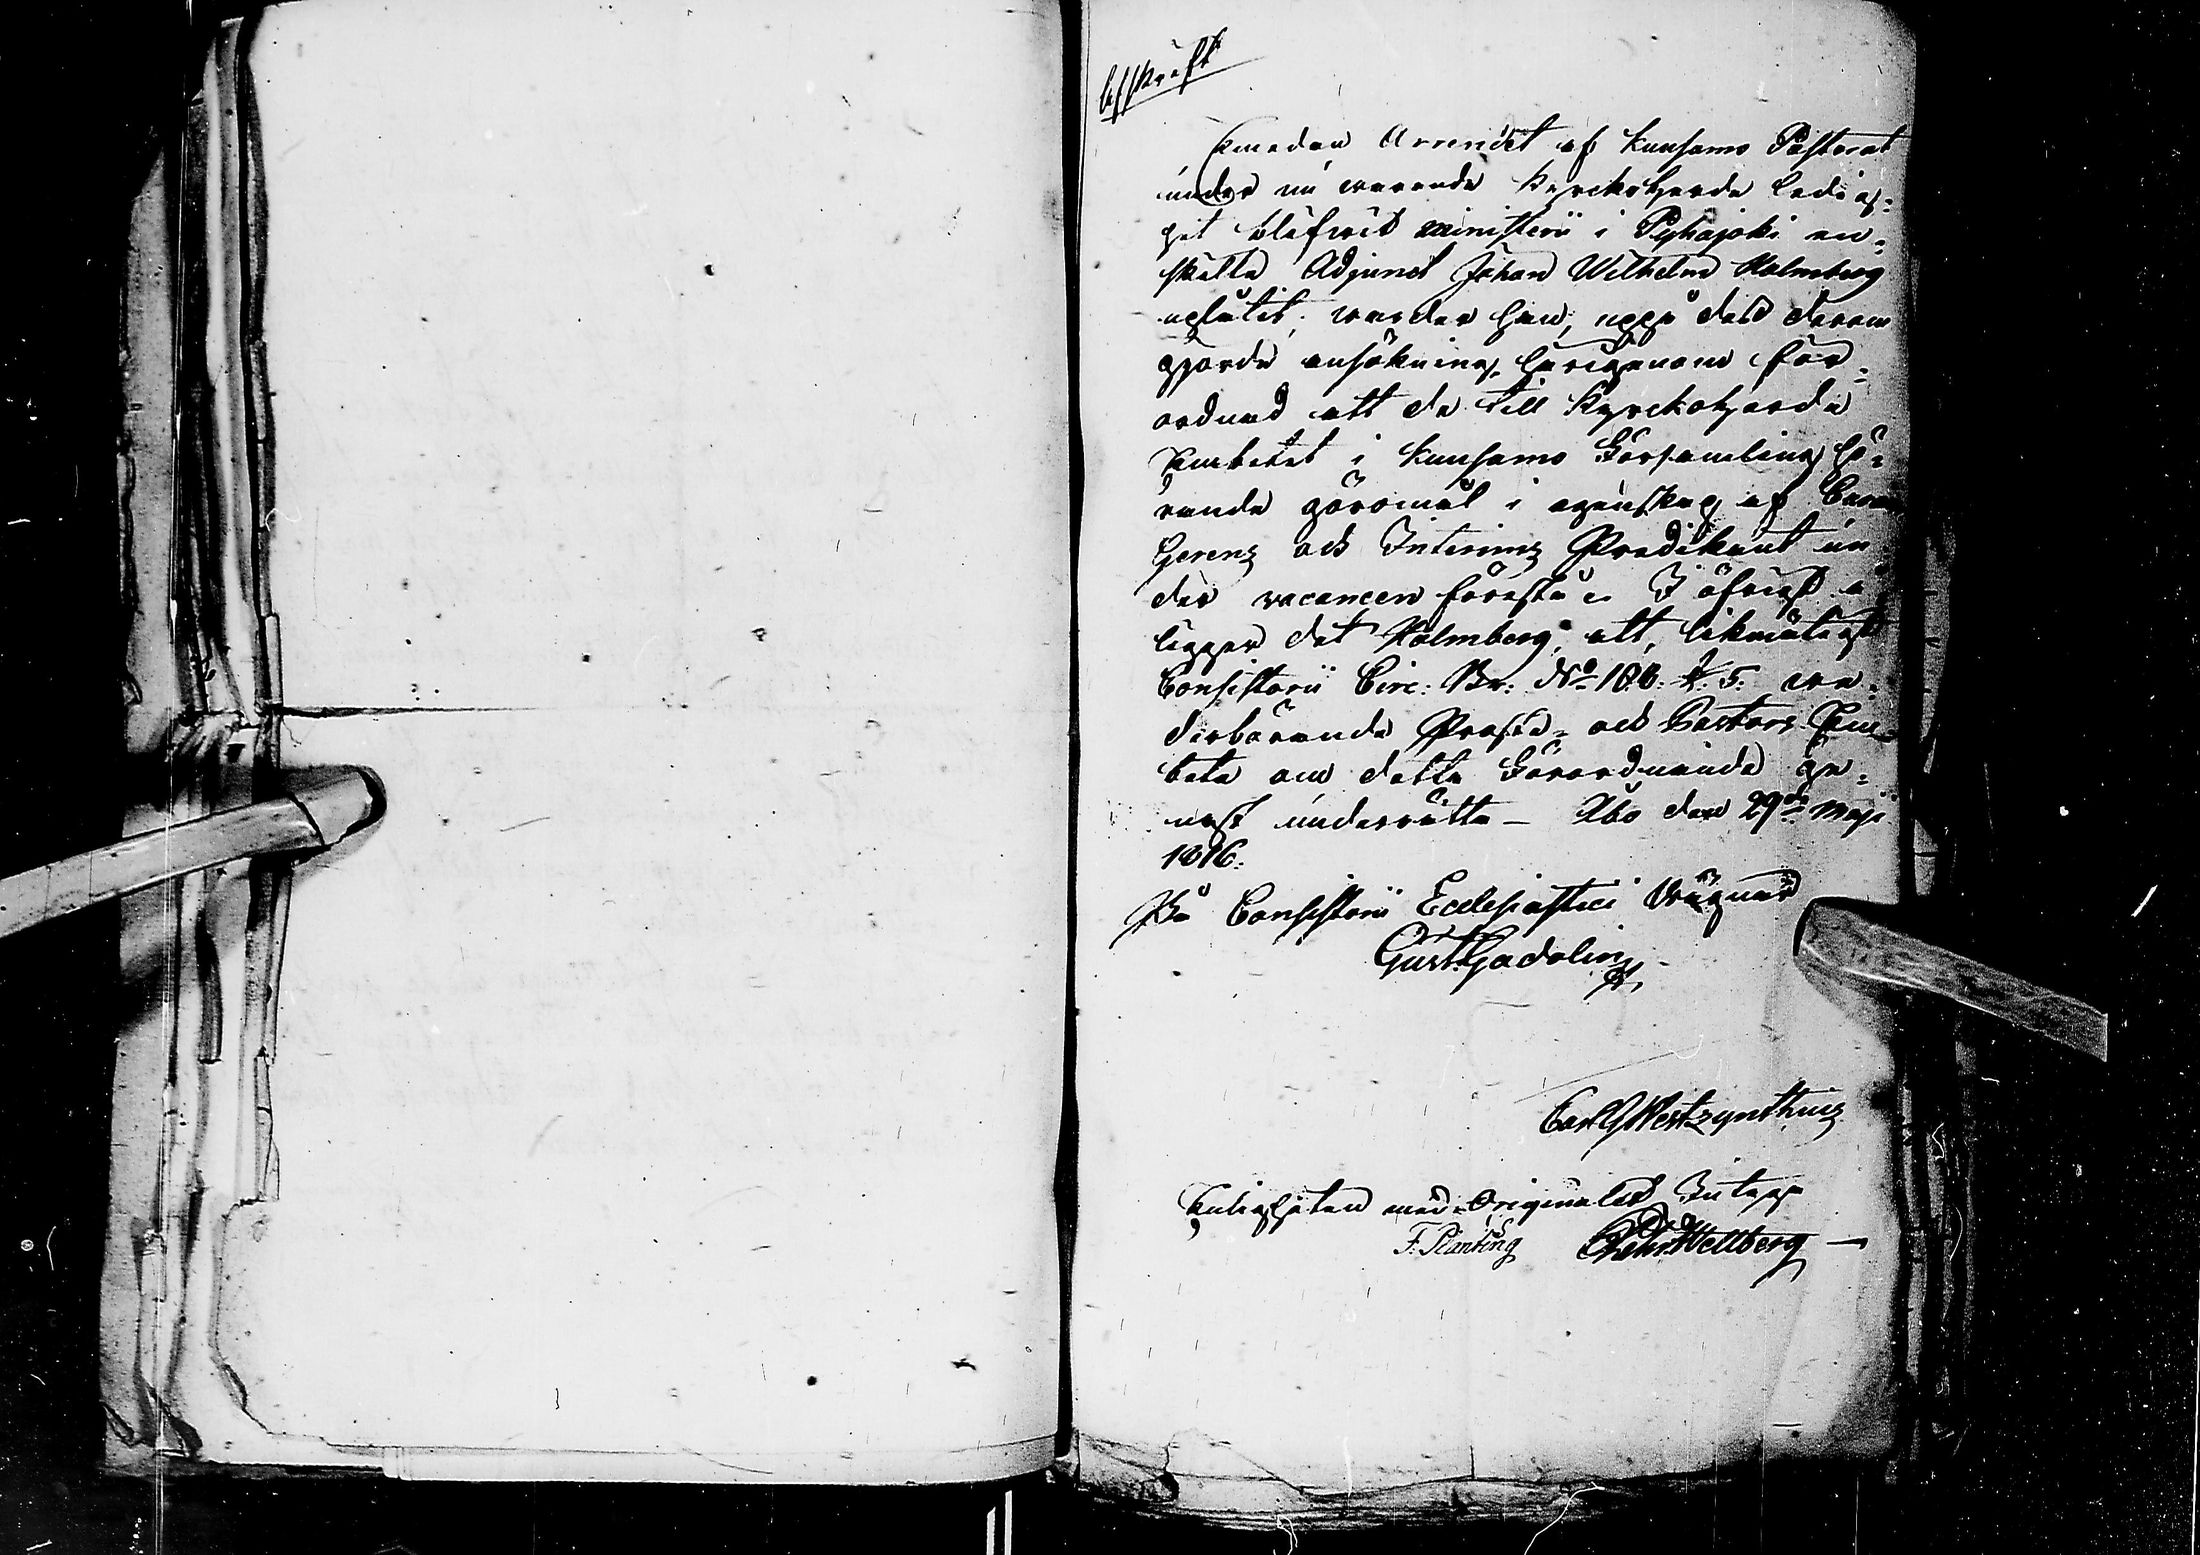 Afskrift
Emedan Arrendet af Kuusamo Pastorat
under nu warande Kyrkoherde ledig-
het blifwit ministerii i Pyhäjoki en-
skilte Adjunct Johan Wilhelm Holmberg
uplåtit; warder han, uppå dess derom
gjorde ansökning, härigenom för-
ordnad att de till Kyrckoherde
Embetet i Kuusamo Församling hö-
rande göromål i egenskap af Curam
Gerens och Interims Predikant un
der vacancen förestå. I öfrigt å
ligger det Holmberg, att, likmätigt
Consistorii Circ: Br: No 100. § 5. we-
derbörande Prosta- och Pastors Em-
bete om detta Förordnande ge-
nast underrätta – Åbo den 29de Maji
1816.
På Consistorii Ecclesiastici Wägnar
Gust: Gadolin
Carl G Westzynthius
Enligheten med Originalet Intyga
F. Planting Wellberg –